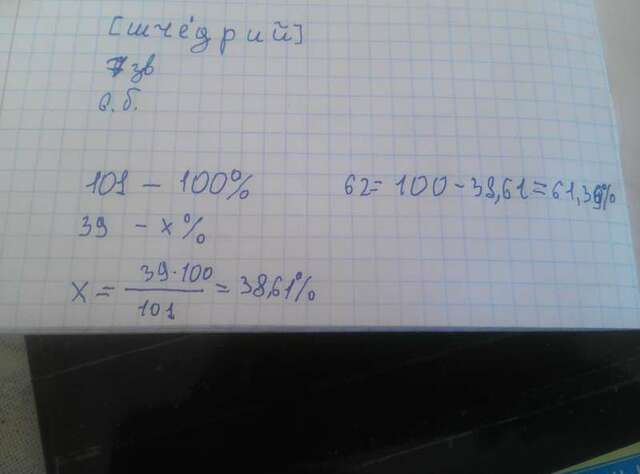 [шче́дрий]
7 зв
6.б.
101 – 100%
39 – x%
x = 39·100 / 101 = 38,61%
62 = 100 – 38,61 = 61,39%